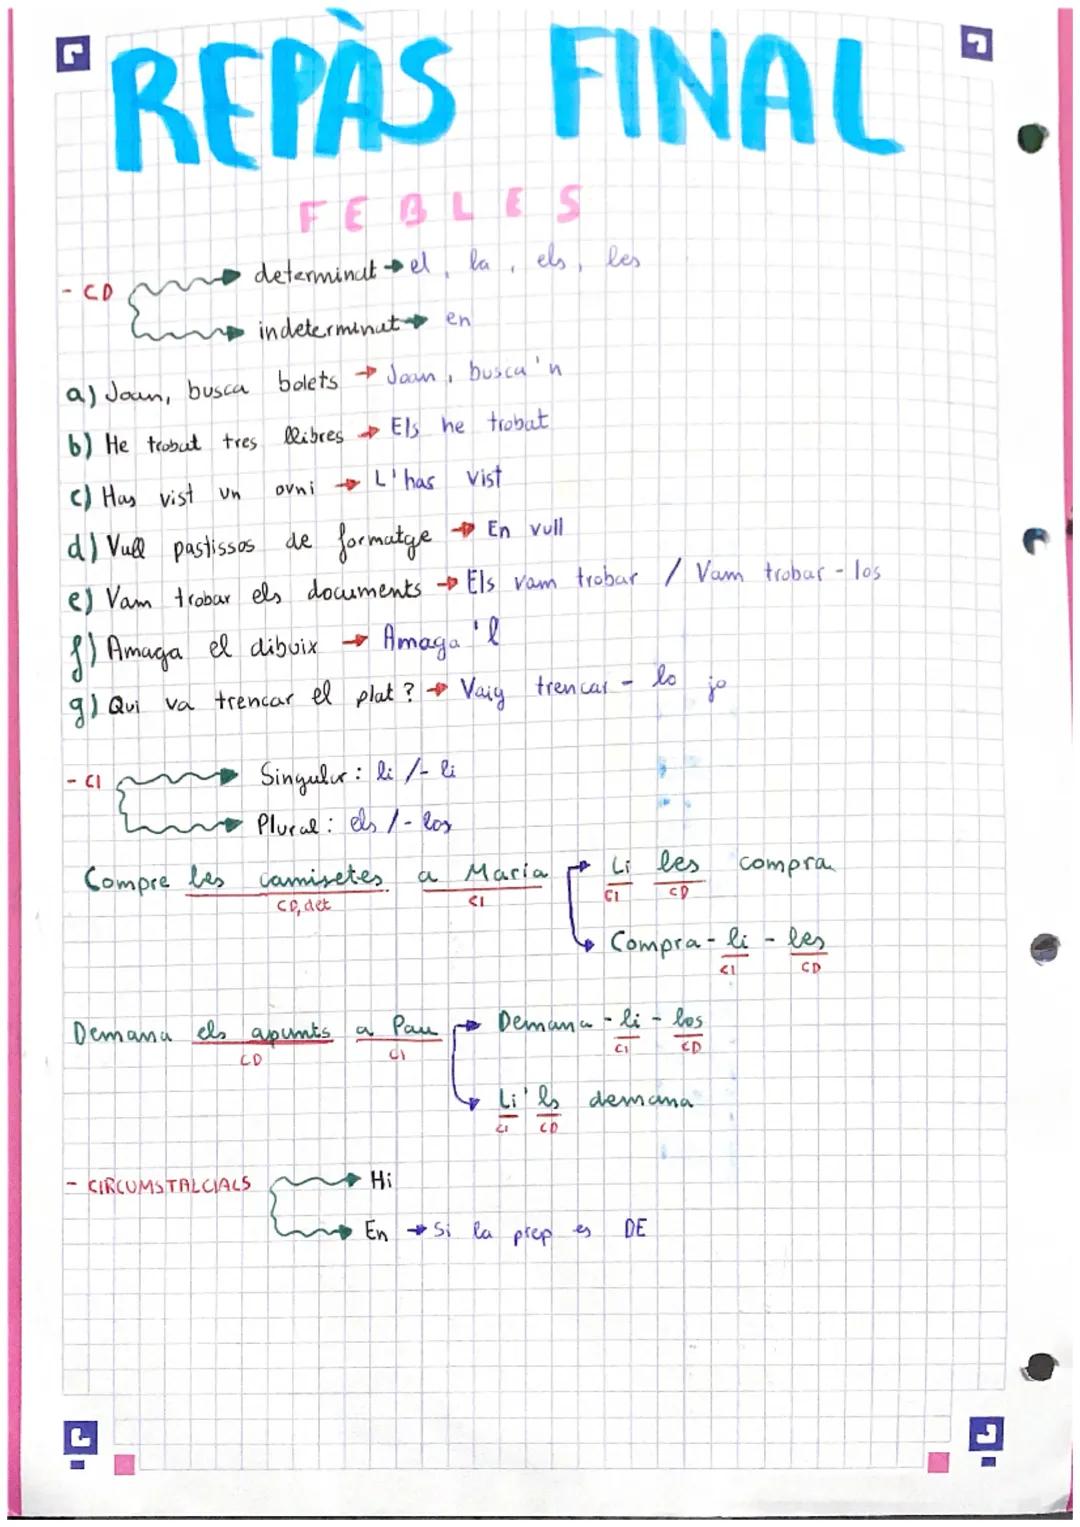 REPÀS FINAL
FEBLES
- CD
determinat → el, la, els, les
indeterminat → en
a) Joan, busca bolets → Joan, busca'n
b) He trobat tres llibres → Els he trobat
c) Has vist un ovni → L'has vist
d) Vull pastissos de formatge → En vull
e) Vam trobar els documents → Els vam trobar / Vam trobar - los
f) Amaga el dibuix → Amaga'l
g) Qui va trencar el plat? → Vaig trencar - lo jo
- CI
Singular: li /- li
Plural: els /- los
Compre les camisetes a Maria
CD, det CI
Li les compra
CI CD
Compra - li - les
CI CD
Demana els apunts a Pau
CD CI
Demana - li - los
CI CD
Li'ls demana
CI CD
- CIRCUMSTALCIALS
Hi
En → Si la prep es DE